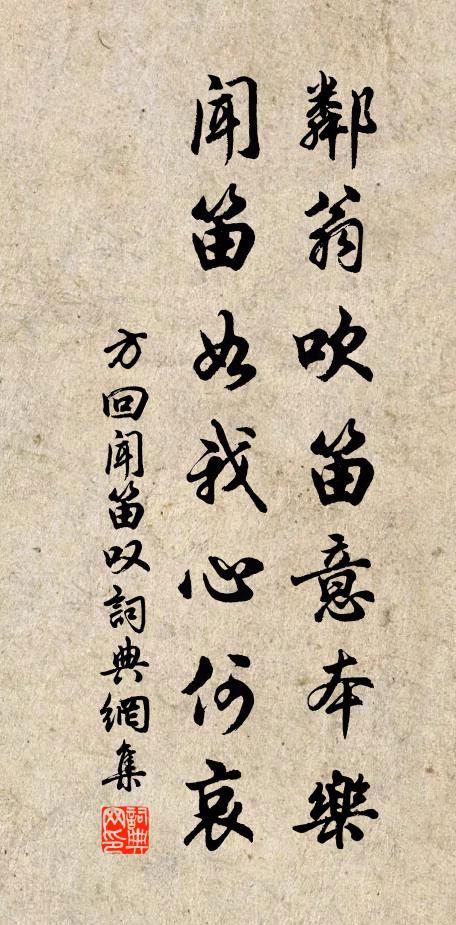 鄰翁吹笛意本樂
聞笛如我心何哀
方回聞笛叹詞典網集
詞典网印